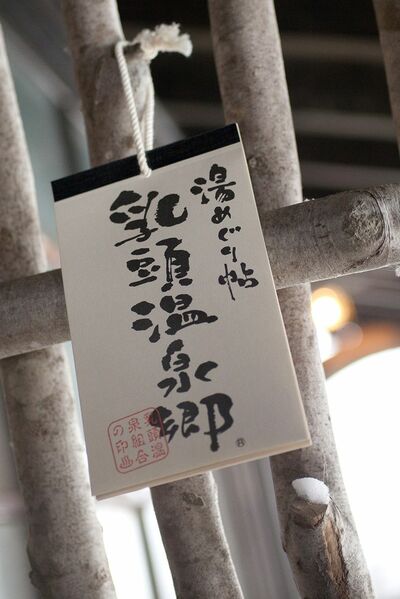 湯めぐり帖
乳頭温泉郷
®
乳頭温
泉組合
の印